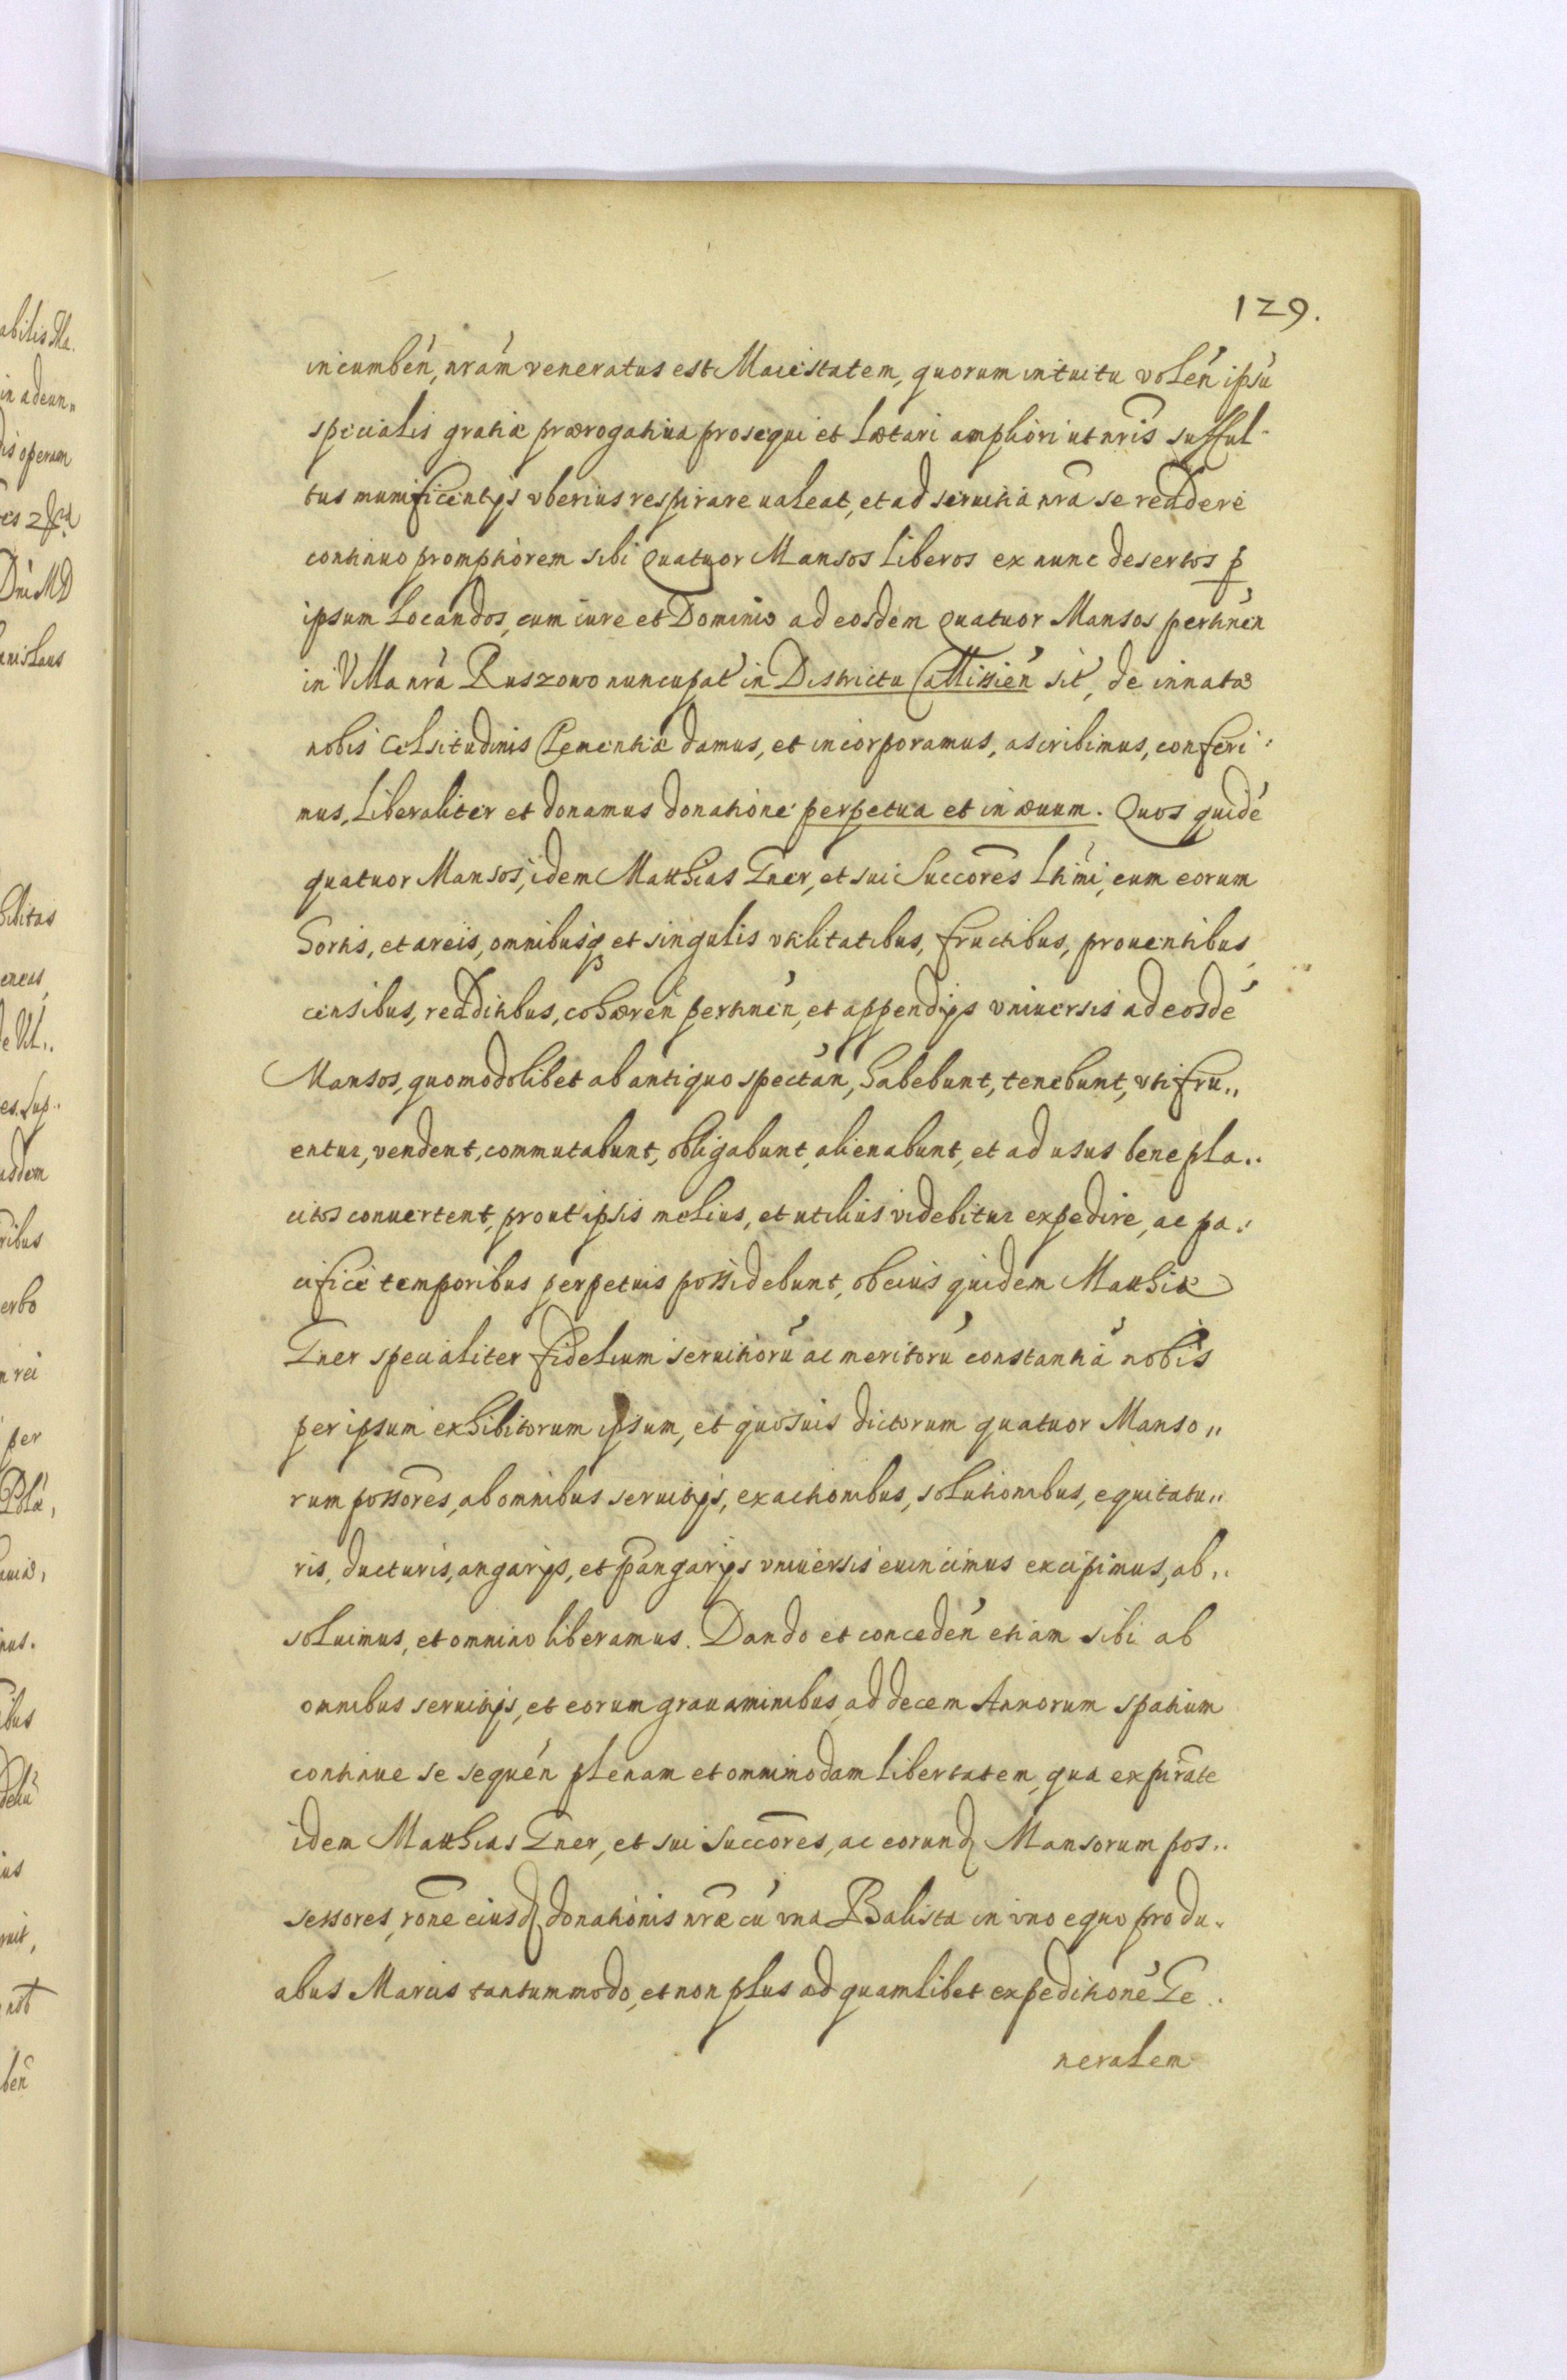 129.
incumbén, nrám veneratus est Maiestatem, quorum intuitu volén ipsú
specialis gratiæ prærogatiua prosequi et lætari ampliori ut nris sufful-
tus munificentijs vberius respirare ualeat, et ad seruitia nra se reddere
continuo promptiorem sibi quatuor Mansos liberos ex nunc desertos p
ipsum locandos, cum iure et Dominio ad eosdem quatuor Mansos pertinén
in Villa nrá Ruszowo nuncupat' in Districtu Callissién sit', de innata
nobis Celsitudinis Clementia damus, et incorporamus, ascribimus, conferi:
mus, liberaliter et donamus donatione perpetua et in æuum. Quos quidé
quatuor Mansos, idem Matthias Gner, et sui Succores lt̃imi, cum eorum
hortis, et areis, omnibusq et singulis vtilitatibus, fructibus, prouentibus,
censibus, redditibus, cohæren pertinén, et appendijs vniuersis ad eosdé
Mansos, quomodolibet ab antiquo spectán, habebunt, tenebunt, vti fru„
entur, vendent, commutabunt, obligabunt, alienabunt, et ad usus benepla..
citos conuertent, prout ipsis melius, et utilius videbitur expedire, ac pa..
cifice temporibus perpetuis possidebunt, ob cuius quidem Matthiæ
Gner specialiter fidelium seruitiorú ac meritorú constantiá nobis
per ipsum exhibitorum ipsum, et quosuis dictorum quatuor Manso„
rum possores, ab omnibus seruitijs, exactionibus, solutionibus, equitatu„
ris, ducturis, angarijs, et pangarijs vniuersis euincimus excipimus, ab„
soluimus, et omnino liberamus. Dando et concedén etiam sibi ab
omnibus seruitijs, et eorum grauaminibus, ad decem Annorum spatium
continue se sequén plenam et omnimodam libertatem, qua expirate
idem Matthias Gner, et sui Succores, ac eorund Mansorum pos..
sessores, rone eiusd donationis nræ cú vna Balista in vno equo pro du.
abus Marcis tantummodo, et non plus ad quamlibet expeditioné Ge..
neralem